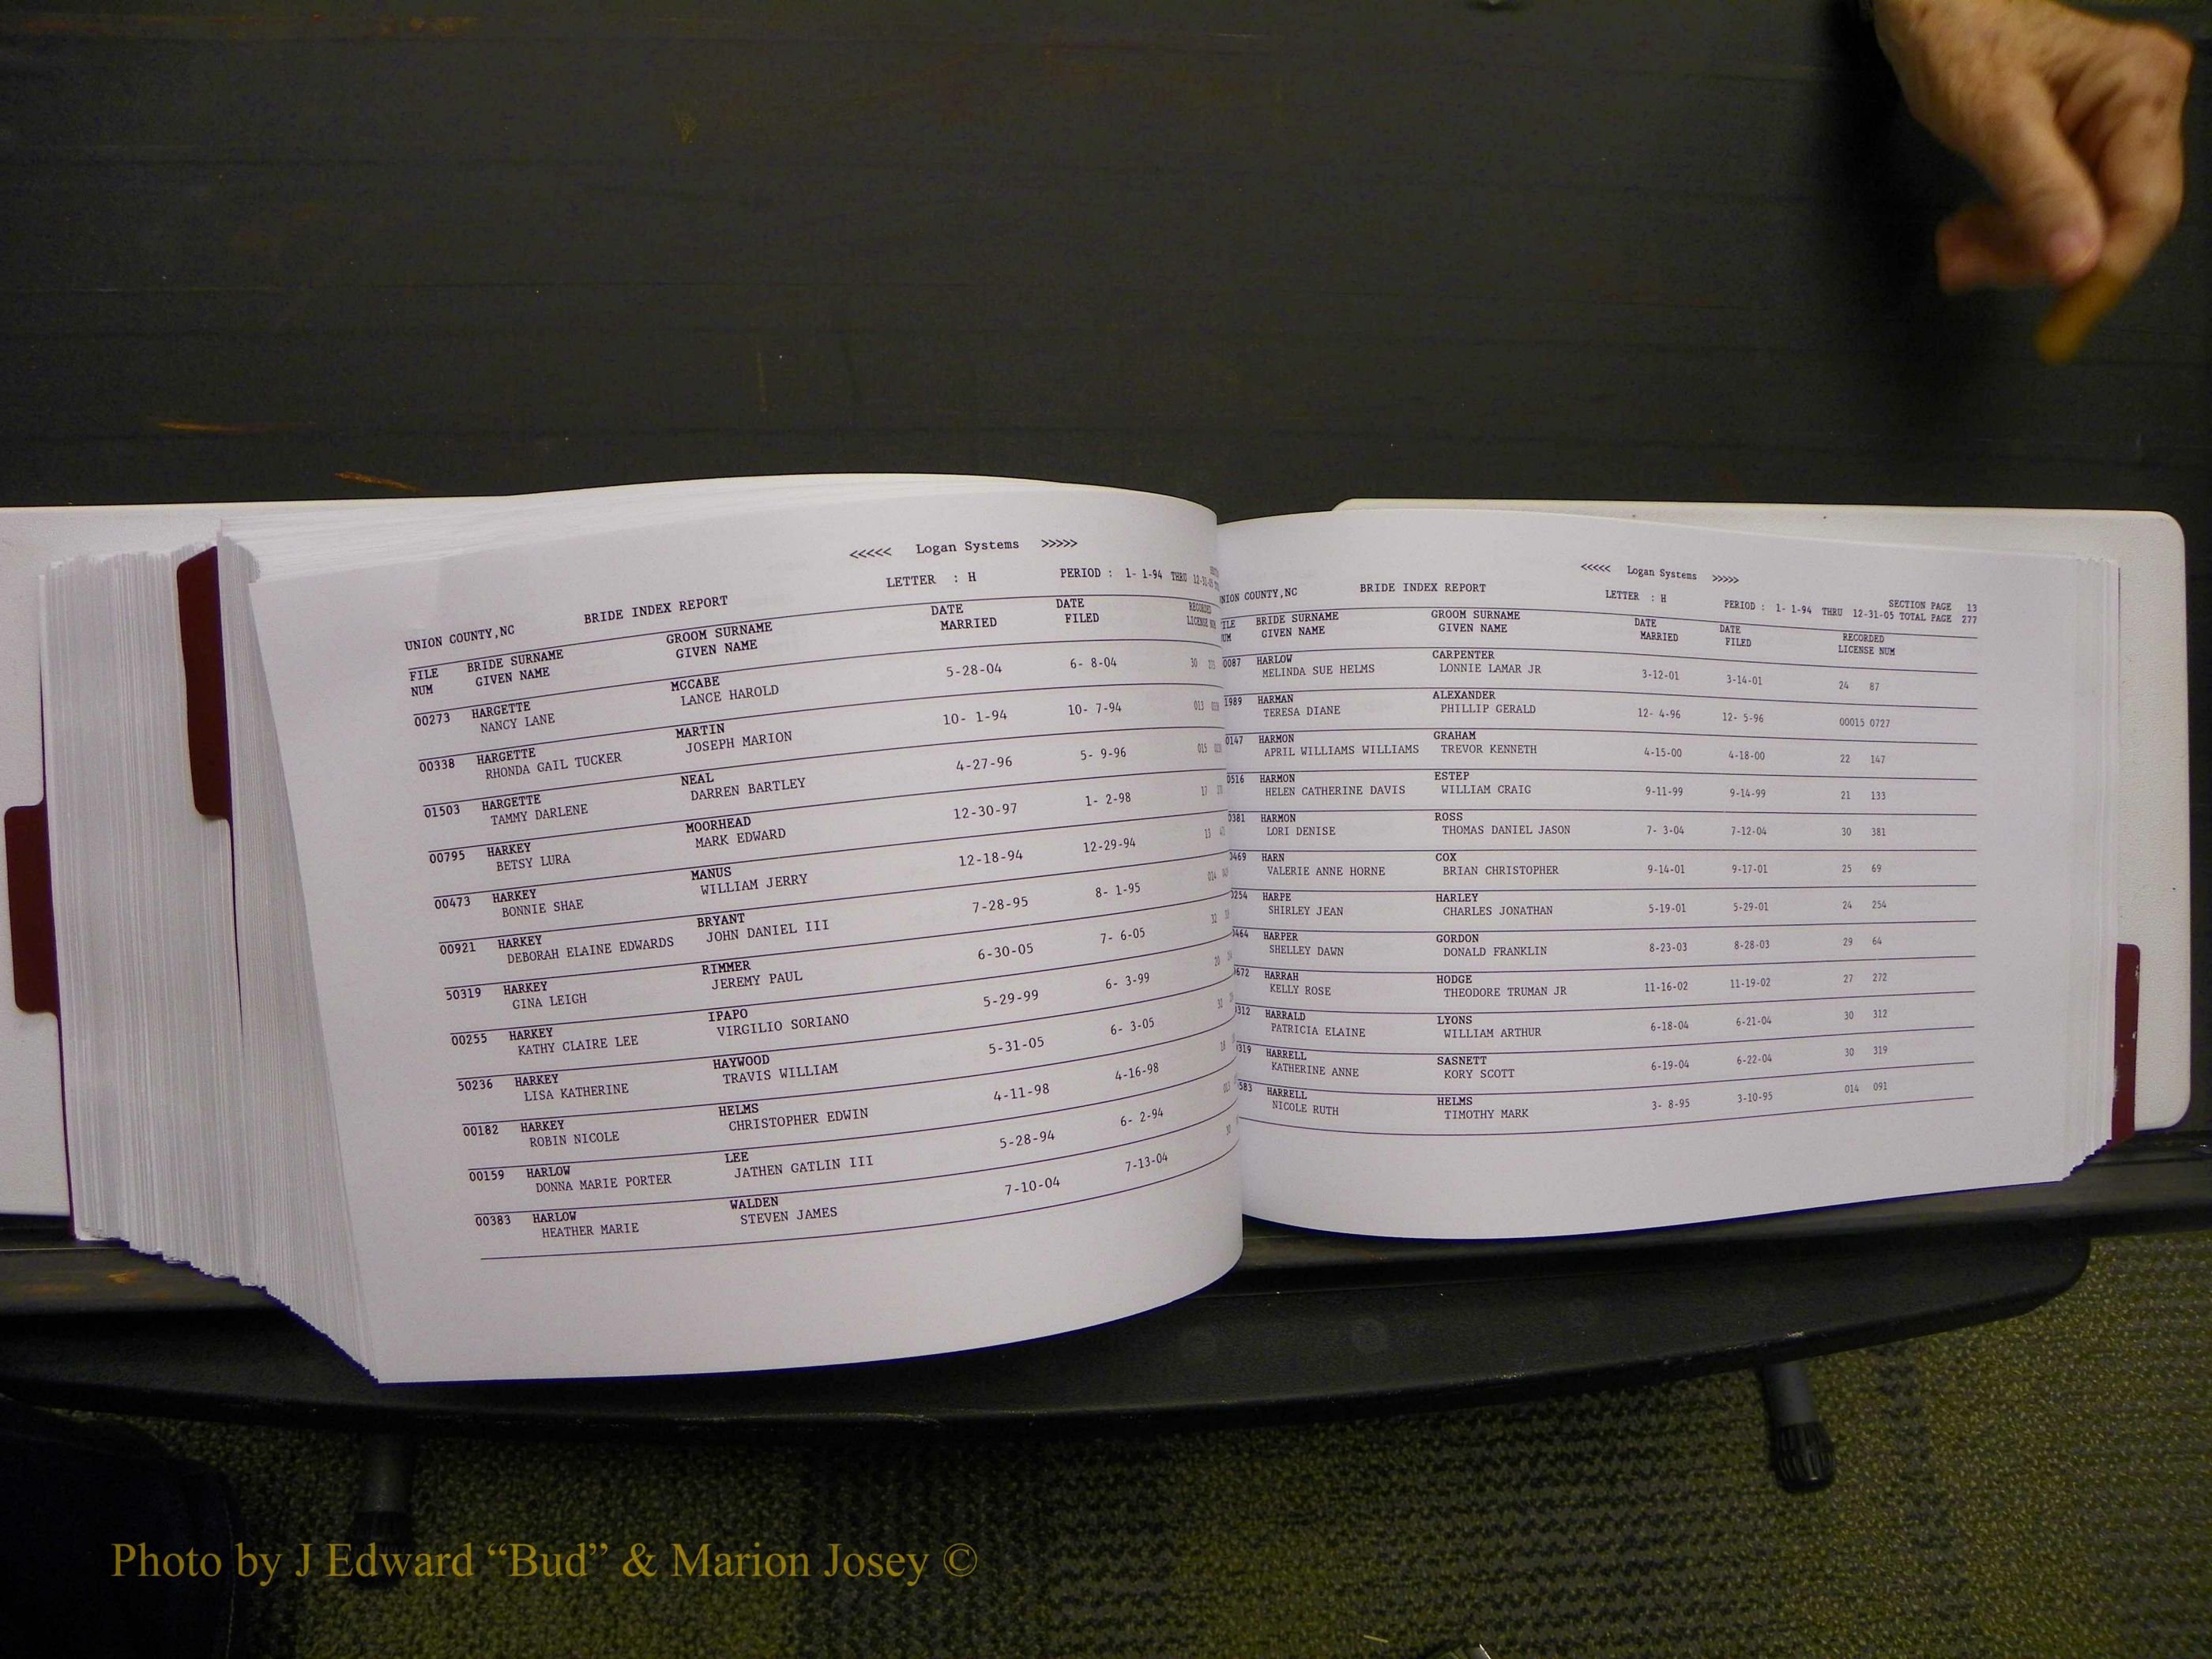 <<<<< Logan Systems >>>>>
UNION COUNTY,NC BRIDE INDEX REPORT LETTER : H PERIOD : 1- 1-94 THRU
FILE BRIDE SURNAME GROOM SURNAME DATE DATE RECORDED
NUM GIVEN NAME GIVEN NAME MARRIED FILED LICENSE
00273 HARGETTE MCCABE 5-28-04 6- 8-04 30
NANCY LANE LANCE HAROLD
00338 HARGETTE MARTIN 10- 1-94 10- 7-94 013
RHONDA GAIL TUCKER JOSEPH MARION
01503 HARGETTE NEAL 4-27-96 5- 9-96 015
TAMMY DARLENE DARREN BARTLEY
00795 HARKEY MOORHEAD 12-30-97 1- 2-98 17
BETSY LURA MARK EDWARD
00473 HARKEY MANUS 12-18-94 12-29-94 13
BONNIE SHAE WILLIAM JERRY
00921 HARKEY BRYANT 7-28-95 8- 1-95 014
DEBORAH ELAINE EDWARDS JOHN DANIEL III
50319 HARKEY RIMMER 6-30-05 7- 6-05
GINA LEIGH JEREMY PAUL
00255 HARKEY IPAPO 5-29-99 6- 3-99
KATHY CLAIRE LEE VIRGILIO SORIANO
50236 HARKEY HAYWOOD 5-31-05 6- 3-05
LISA KATHERINE TRAVIS WILLIAM
00182 HARKEY HELMS 4-11-98 4-16-98
ROBIN NICOLE CHRISTOPHER EDWIN
00159 HARLOW LEE 5-28-94 6- 2-94
DONNA MARIE PORTER JATHEN GATLIN III
00383 HARLOW WALDEN 7-10-04 7-13-04
HEATHER MARIE STEVEN JAMES
<<<<< Logan Systems >>>>>
SECTION PAGE 13
NION COUNTY,NC BRIDE INDEX REPORT LETTER : H PERIOD : 1- 1-94 THRU 12-31-05 TOTAL PAGE 277
ILE BRIDE SURNAME GROOM SURNAME DATE DATE RECORDED
UM GIVEN NAME GIVEN NAME MARRIED FILED LICENSE NUM
0087 HARLOW CARPENTER 3-12-01 3-14-01 24 87
MELINDA SUE HELMS LONNIE LAMAR JR
1989 HARMAN ALEXANDER 12- 4-96 12- 5-96 00015 0727
TERESA DIANE PHILLIP GERALD
0147 HARMON GRAHAM 4-15-00 4-18-00 22 147
APRIL WILLIAMS WILLIAMS TREVOR KENNETH
0516 HARMON ESTEP 9-11-99 9-14-99 21 133
HELEN CATHERINE DAVIS WILLIAM CRAIG
0381 HARMON ROSS 7- 3-04 7-12-04 30 381
LORI DENISE THOMAS DANIEL JASON
0469 HARN COX 9-14-01 9-17-01 25 69
VALERIE ANNE HORNE BRIAN CHRISTOPHER
0254 HARPE HARLEY 5-19-01 5-29-01 24 254
SHIRLEY JEAN CHARLES JONATHAN
464 HARPER GORDON 8-23-03 8-28-03 29 64
SHELLEY DAWN DONALD FRANKLIN
672 HARRAH HODGE 11-16-02 11-19-02 27 272
KELLY ROSE THEODORE TRUMAN JR
312 HARRALD LYONS 6-18-04 6-21-04 30 312
PATRICIA ELAINE WILLIAM ARTHUR
319 HARRELL SASNETT 6-19-04 6-22-04 30 319
KATHERINE ANNE KORY SCOTT
583 HARRELL HELMS 3- 8-95 3-10-95 014 091
NICOLE RUTH TIMOTHY MARK
Photo by J Edward “Bud” & Marion Josey ©